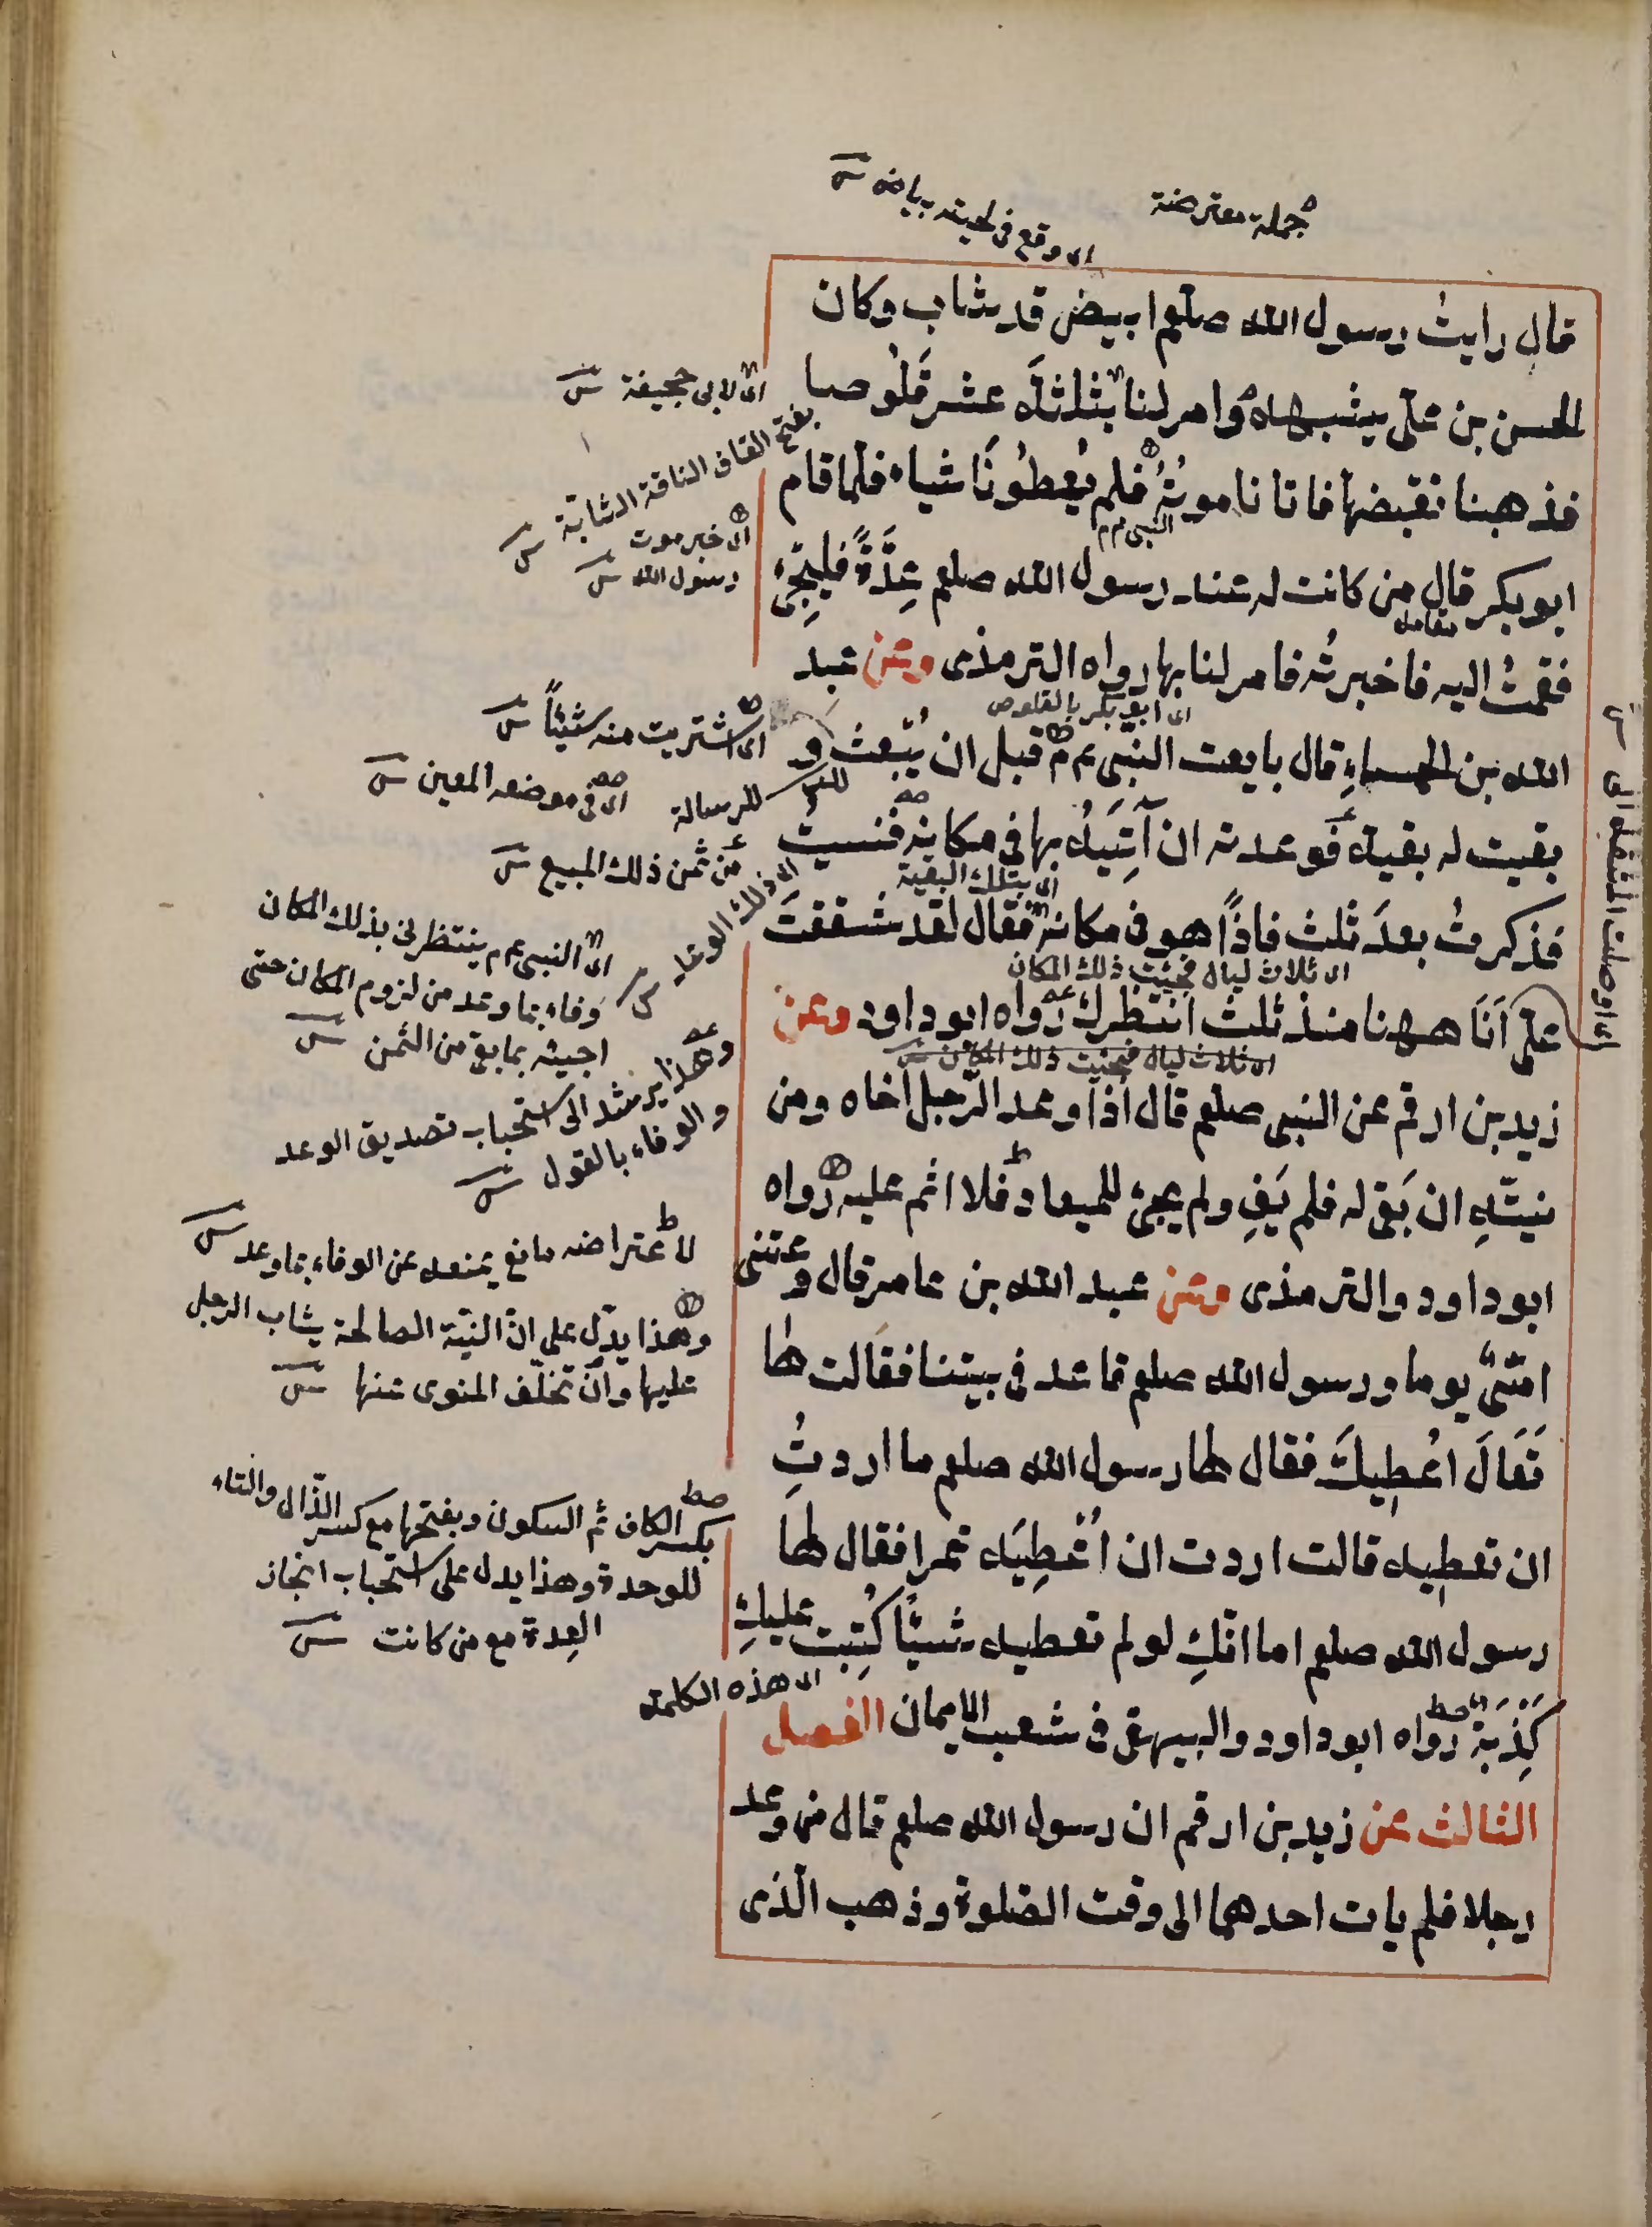 جملة معترضة
اى وقع فى لحيته بياض
قال رايتُ رسول الله صلعم ابيض قد شاب وكان
الحسن بن على يشبهه وامر لنا بثلثة عشر قَلُوصا
فذهبنا نقبضها فاتانا موتُهُ فلم يُعطُونَا شياء فلما قام
النبى عم
ابو بكر قال من كانت له عند رسول الله صلعم عِدَةٌ فليجِئْ
فقمتُ اليه فاخبرتُه فامر لنا بها رواه الترمذى وعن عبد
اى ابو بكر بالقلوص
الله بن الحسماءِ قال بايعت النبى عم قبل ان يُبعث و
بقيت له بقية فوعدته ان آتِيَهُ بها فى مكانه فنسيتُ
اى بتلك البقية
فذكرتُ بعدَ ثلث فاذًا هو فى مكانه فقال لقد شققتَ
اى ثلاث ليال فجئت ذلك المكان
علىّ اَنَا ههنا منذ ثلث انتظرك رواه ابو داود وعن
اى ثلاث ليال فجئت ذلك المكان
زيد بن ارقم عن النبى صلعم قال اذا وعد الرّجل اخاه ومن
نيتّهِ ان يَفى له فلم يَفِ ولم يجئ للميعاد فلا اثم عليه رواه
ابو داود والترمذى وعن عبد الله بن عامر قال وعتنى
امّى يوما ورسول الله صلعم قاعد فى بيتنا فقالت ها
تَعَالَ اُعْطِيكَ فقال لها رسول الله صلعم ما اردتِ
ان تعطيه قالت اردت ان اُعْطِيَه تمرا فقال لها
رسول الله صلعم اما انّكِ لو لم تعطيه شيئًا كُتِبت عليكِ
اى هذه الكلمة
كَِذْبَةٌ رواه ابو داود والبيهقى فى شعب الايمان الفصل
الثالث عن زيد بن ارقم ان رسول الله صلعم قال من وعد
رجلا فلم يات احدهما الى وقت الصلوة وذهب الّذى
اى لابى جحيفة
بفتح القاف الناقة الشابّة
اى خبر موت
رسول الله
اى اشتريت منه شيئًا
للرسالة
اى فى موضعه المعين
من ثمن ذلك المبيع
اى ذلك الوعد
اى النبى عم ينتظرنى بذلك المكان
وفاء بما وعد من لزوم المكان حتى
اجيئه بما بقى من الثمن
وهذا يرشد الى استحباب تصديق الوعد
والوفاء بالقول
لاعتراضه مانع يمنعه عن الوفاء بما وعد
وهذا يدّل على انّ النيّة الصالحة يثاب الرجل
عليها وان تخلّف المنوى عنها
بكسر الكاف ثم السكون وبفتحها مع كسر الذّال والتاء
للوحدة وهذا يدل على استحباب انجاز
العِدة مع من كانت
اى اوصلت المشقة الىّ